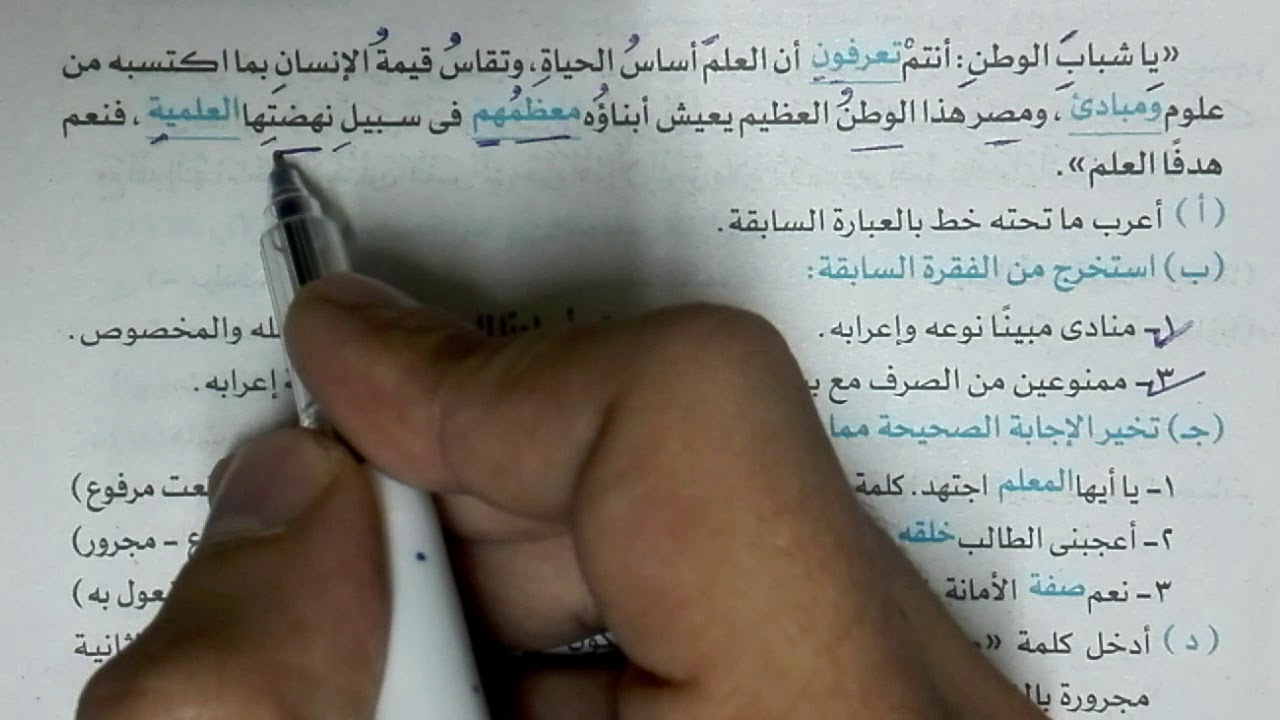 «يا شبابَ الوطنِ: أنتمْ تعرفون أن العلمَ أساسُ الحياةِ، وتقاسُ قيمةُ الإنسانِ بما اكتسبه من
علوم وَمبادئَ، ومصرَ هذا الوطنُ العظيم يعيش أبناؤُه معظمُهم فى سبيلِ نهضتِها العلميةِ، فنعم
هدفًا العلم».
(أ) أعرب ما تحته خط بالعبارة السابقة.
(ب) استخرج من الفقرة السابقة:
١- منادى مبينًا نوعه وإعرابه. والمخصوص.
٣- ممنوعين من الصرف مع إعرابه.
(جـ) تخير الإجابة الصحيحة مما
١- يا أيها المعلم اجتهد. كلمة مرفوع)
٢- أعجبنى الطالب خلقه - مجرور)
٣- نعم صفة الأمانة به)
(د) أدخل كلمة
مجرورة